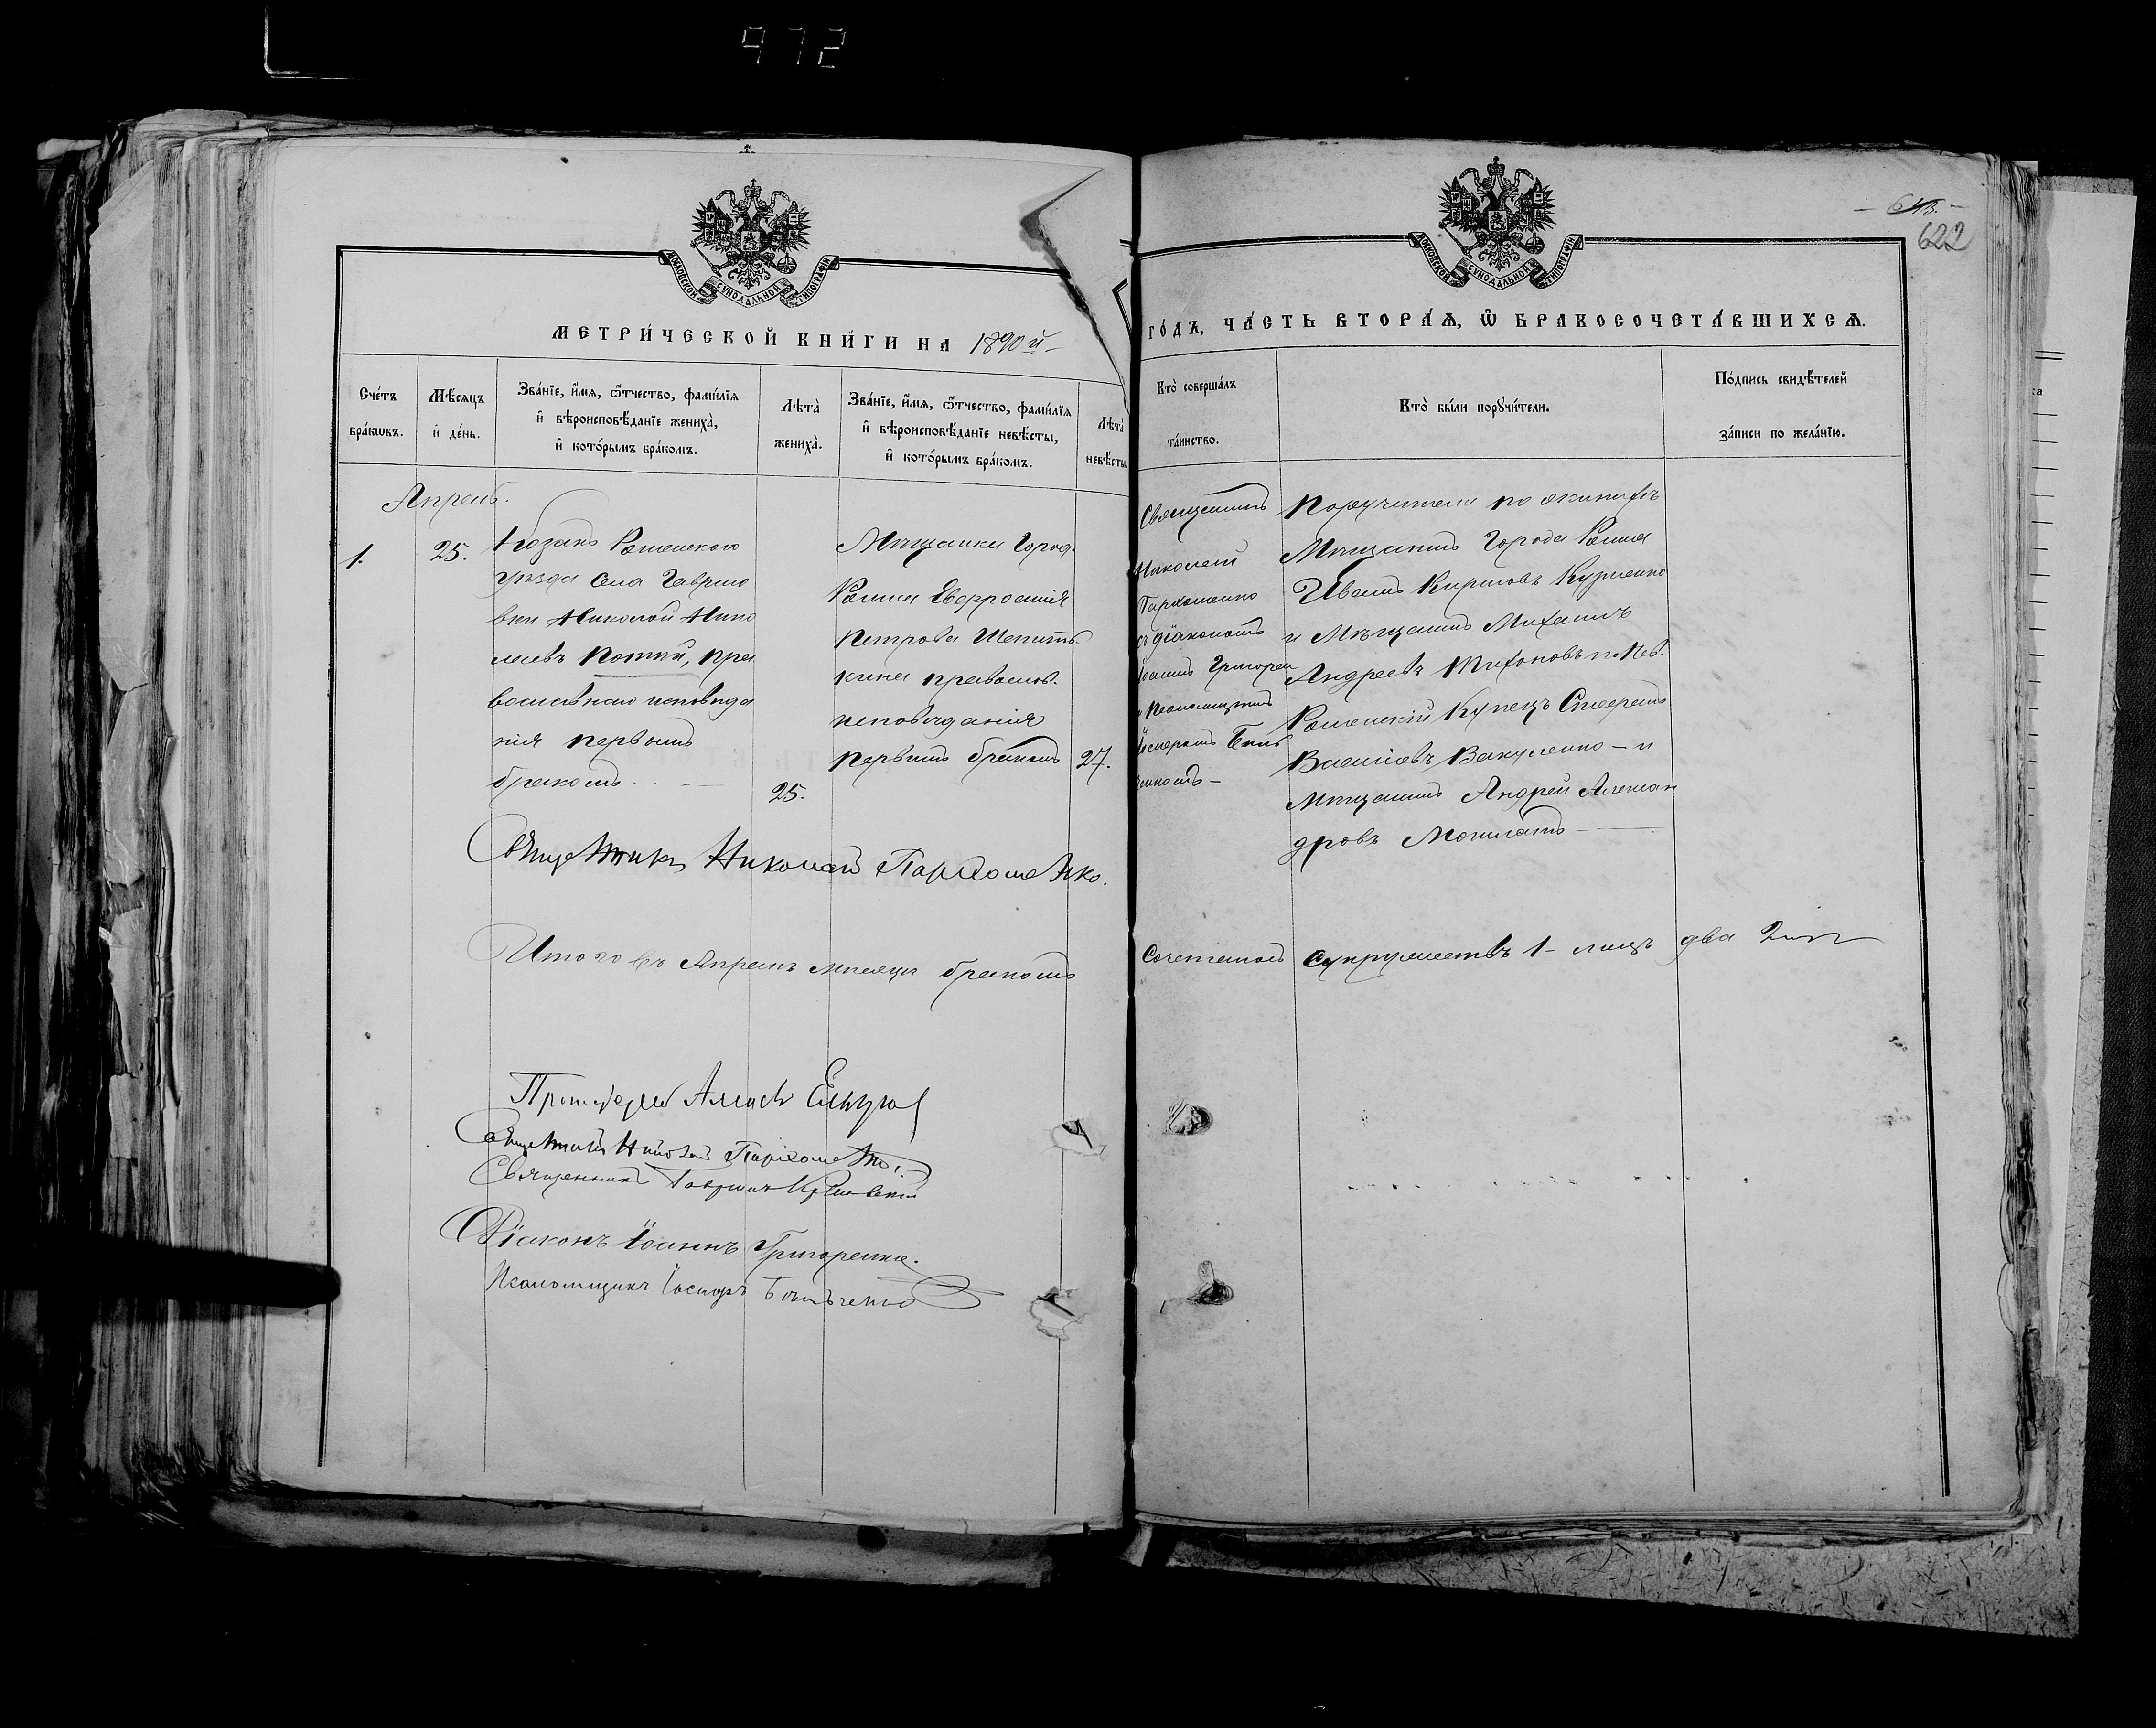 972
МОСКОВСКОЙ СУНОДАЛЬНОЙ ТИПОГРАФІИ
МОСКОВСКОЙ СУНОДАЛЬНОЙ ТИПОГРАФІИ
622
МЕТРИ́ЧЕСКОЙ КНИ́ГИ НА 1890й
ГО́ДЪ, ЧА́СТЬ ВТОРА́Ѧ, Ѽ БРАКОСОЧЕТА́ВШИХСѦ.
Сче́тъ
бра́кѡвъ.
Мѣ́сяцъ
и҆ де́нь.
Зва́нїе, и҆́мѧ, ѻ҆́тчество, фамі́лїѧ
и҆ вѣроисповѣ́данїе жениха̀,
и҆ кото́рымъ бра́комъ.
Лѣта̀
жениха̀.
Зва́нїе, и҆́мѧ, ѻ҆́тчество, фамі́лїѧ
и҆ вѣроисповѣ́данїе невѣ́сты,
и҆ кото́рымъ бра́комъ.
Лѣта̀
невѣ́сты.
Кто̀ соверша́лъ
та́инство.
Кто̀ бы́ли порꙋчи́тели.
По́дпись свидѣ́телей
за́писи по жела́нїю.
Апрель.
1.
25.
Козакъ Роменскаго
уѣзда села Гаврило
вки Николай Нико
лаевъ Поткій, пра
вославнаго исповѣда
нія первымъ
бракомъ
25.
Мѣщанка Город.
Ромна Евфросинія
Петрова
кина православ.
исповѣданія
первымъ бракомъ
27.
Священникъ
Николай
Пархоменко
съ діакономъ
Іоанномъ Григорен
и Псаломщикомъ
Поручители по женихѣ
Мѣщанинъ Города Ромна
Иванъ Кириловъ Кузменко
и Мѣщанинъ Михаилъ
Андреевъ Тихоновъ по Нев.
Роменскій Купецъ Стефанъ
Васильевъ Вакуленко – и
Мѣщанинъ Андрей Алексан
дровъ
Священникъ Николай Пархоменко.
Итого въ Апрелѣ мѣсяцѣ бракомъ
Сочеталось супружествъ 1 – лицъ два 2
Протоіерей
Священникъ Николай Пархоменко.
Священникъ Гавріилъ
Діаконъ Іоаннъ Григоренко.
Псаломщикъ Іосифъ